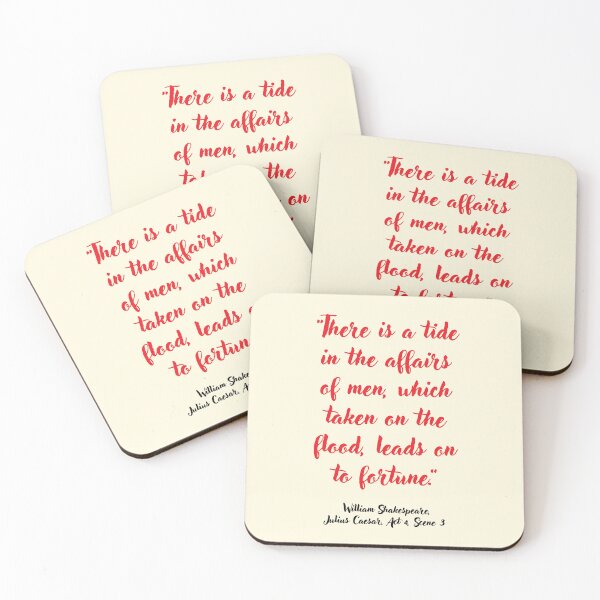 "There is a tide
in the affairs
of men, which
the
on
"There is a tide
in the affairs
of men, which
taken on the
flood, leads on
to fortune."
"There is a tide
in the affairs
of men, which
taken on the
flood, leads
to fortune
William
Julius Caesar,
"There is a tide
in the affairs
of men, which
taken on the
flood, leads on
to fortune."
William Shakespeare,
Julius Caesar, Act 4 Scene 3